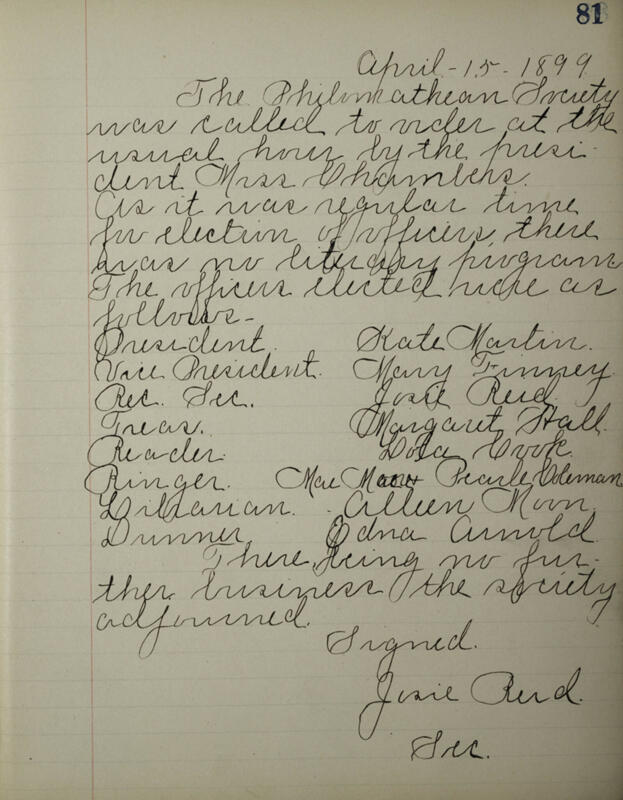 81
April-15-1899
The Philomathean Society
was called to order at the
usual hour by the presi-
dent Miss Chambers.
As it was regular time
for election of officers, there
was no literary program
The officers elected were as
follows-
President Kate Martin.
Vice President. Mary Finney
Rec. Sec. Josie Reid.
Treas. Margaret Hall.
Reader. Lola Cook.
Ringer. Mae Pearle Coleman
Librarian. Alleen Moon.
Dunner Edna Arnold
There being no fur-
ther business the society
adjourned.
Signed.
Josie Reid.
Sec.